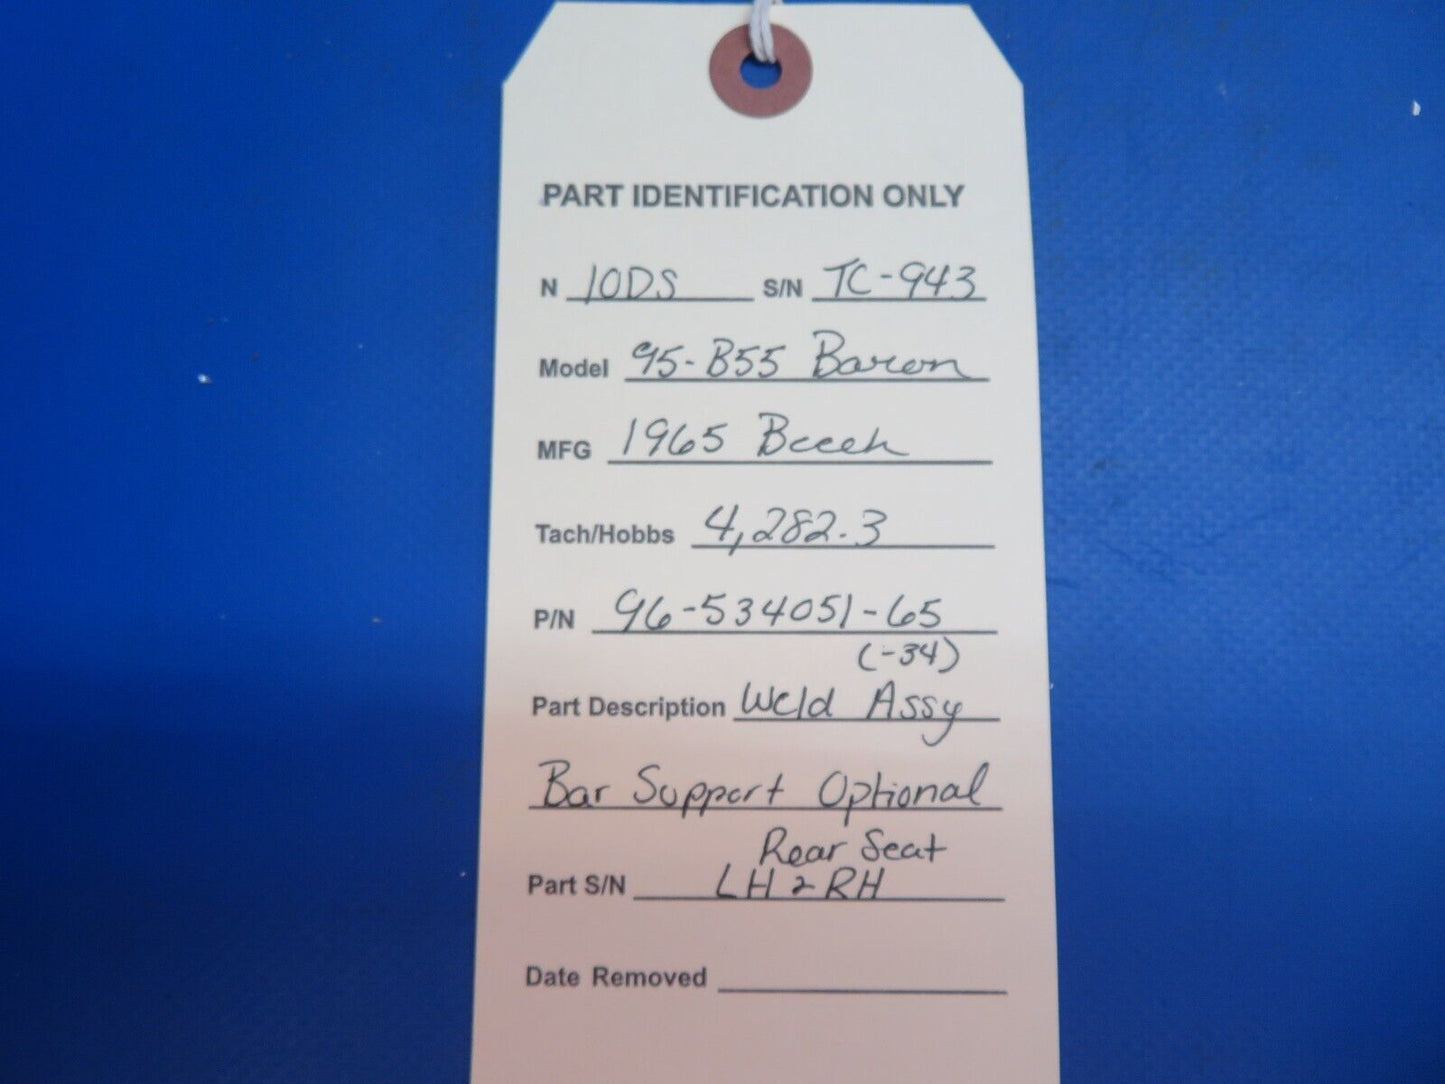 PART IDENTIFICATION ONLY
N 10DS S/N TC-943
Model 95-B55 Baron
MFG 1965 Beech
Tach/Hobbs 4,282.3
P/N 96-534051-65
(-34)
Part Description Weld Assy
Bar Support Optional
Rear Seat
Part S/N LH & RH
Date Removed